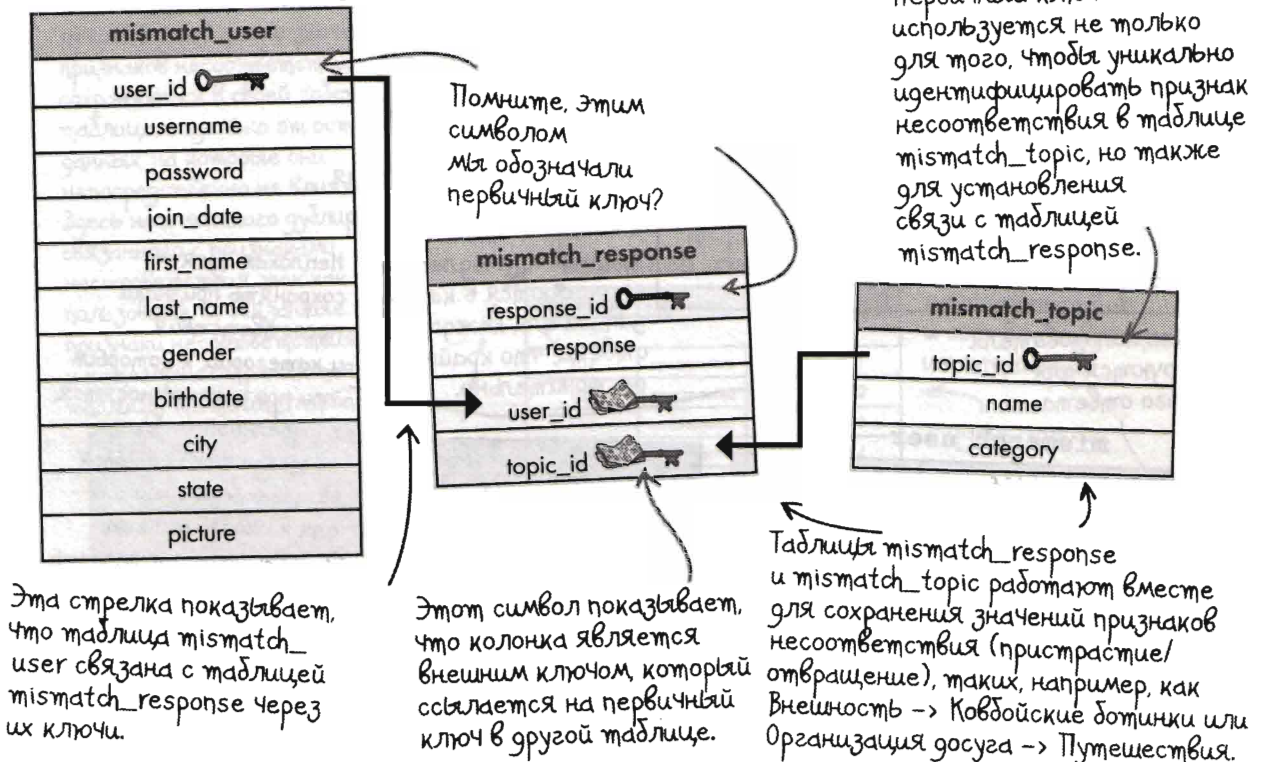 mismatch_user
user_id
username
password
join_date
first_name
last_name
gender
birthdate
city
state
picture
Помните, этим
символом
мы обозначали
первичный ключ?
mismatch_response
response_id
response
user_id
topic_id
используется не только
для того, чтобы уникально
идентифицировать признак
несоответствия в таблице
mismatch_topic, но также
для установления
связи с таблицей
mismatch_response.
mismatch_topic
topic_id
name
category
Эта стрелка показывает,
что таблица mismatch_
user связана с таблицей
mismatch_response через
их ключи.
Этот символ показывает,
что колонка является
внешним ключом, который
ссылается на первичный
ключ в другой таблице.
Таблицы mismatch_response
и mismatch_topic работают вместе
для сохранения значений признаков
несоответствия (пристрастие/
отвращение), таких, например, как
Внешность -> Ковбойские ботинки или
Организация досуга -> Путешествия.